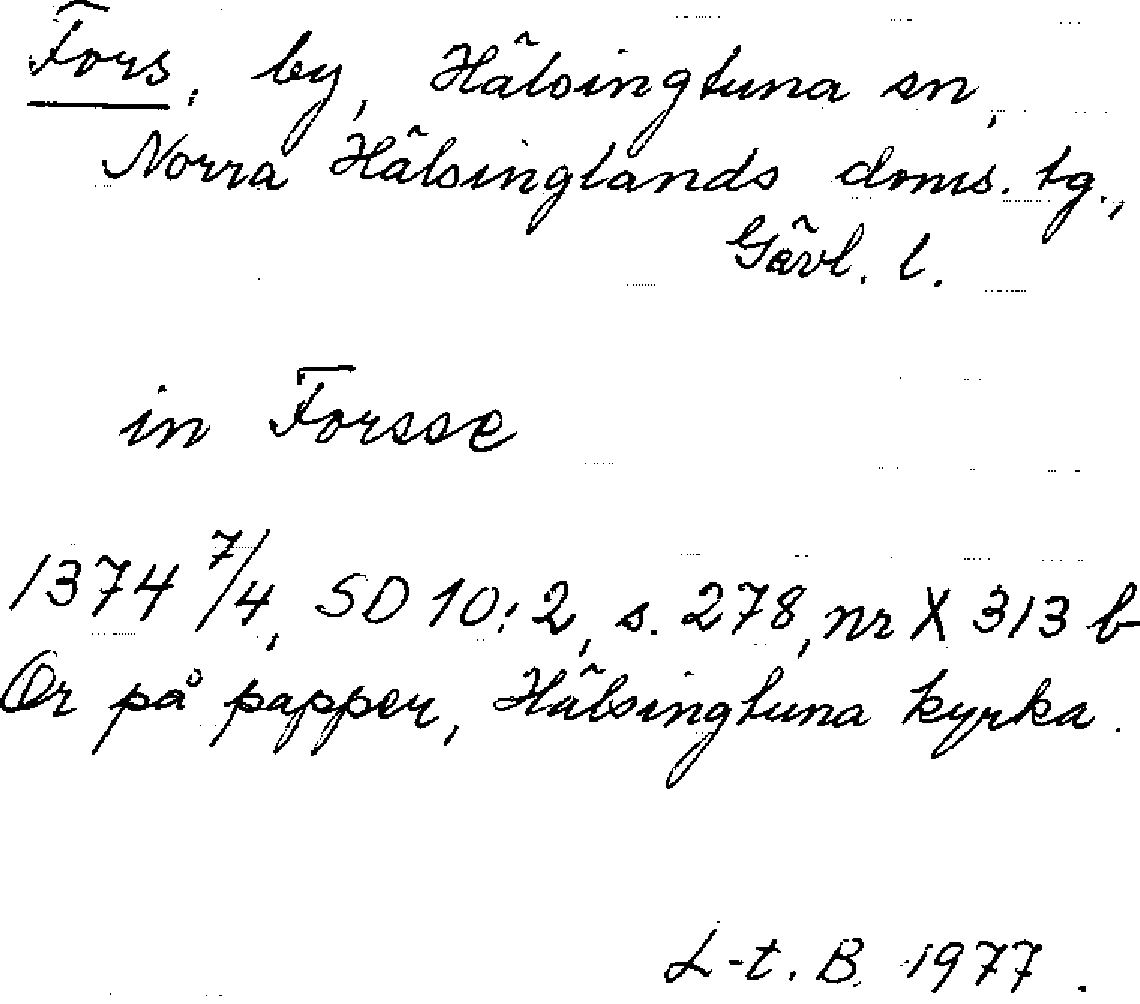 Fors, by, Hälsingtuna sn,
Norra Hälsinglands doms. tg.,
Gävl. l.
in Forsse
1374 7/4, SD 10:2, s. 278, nr X 313 b
Or på papper, Hälsingtuna kyrka.
L-t. B. 1977.